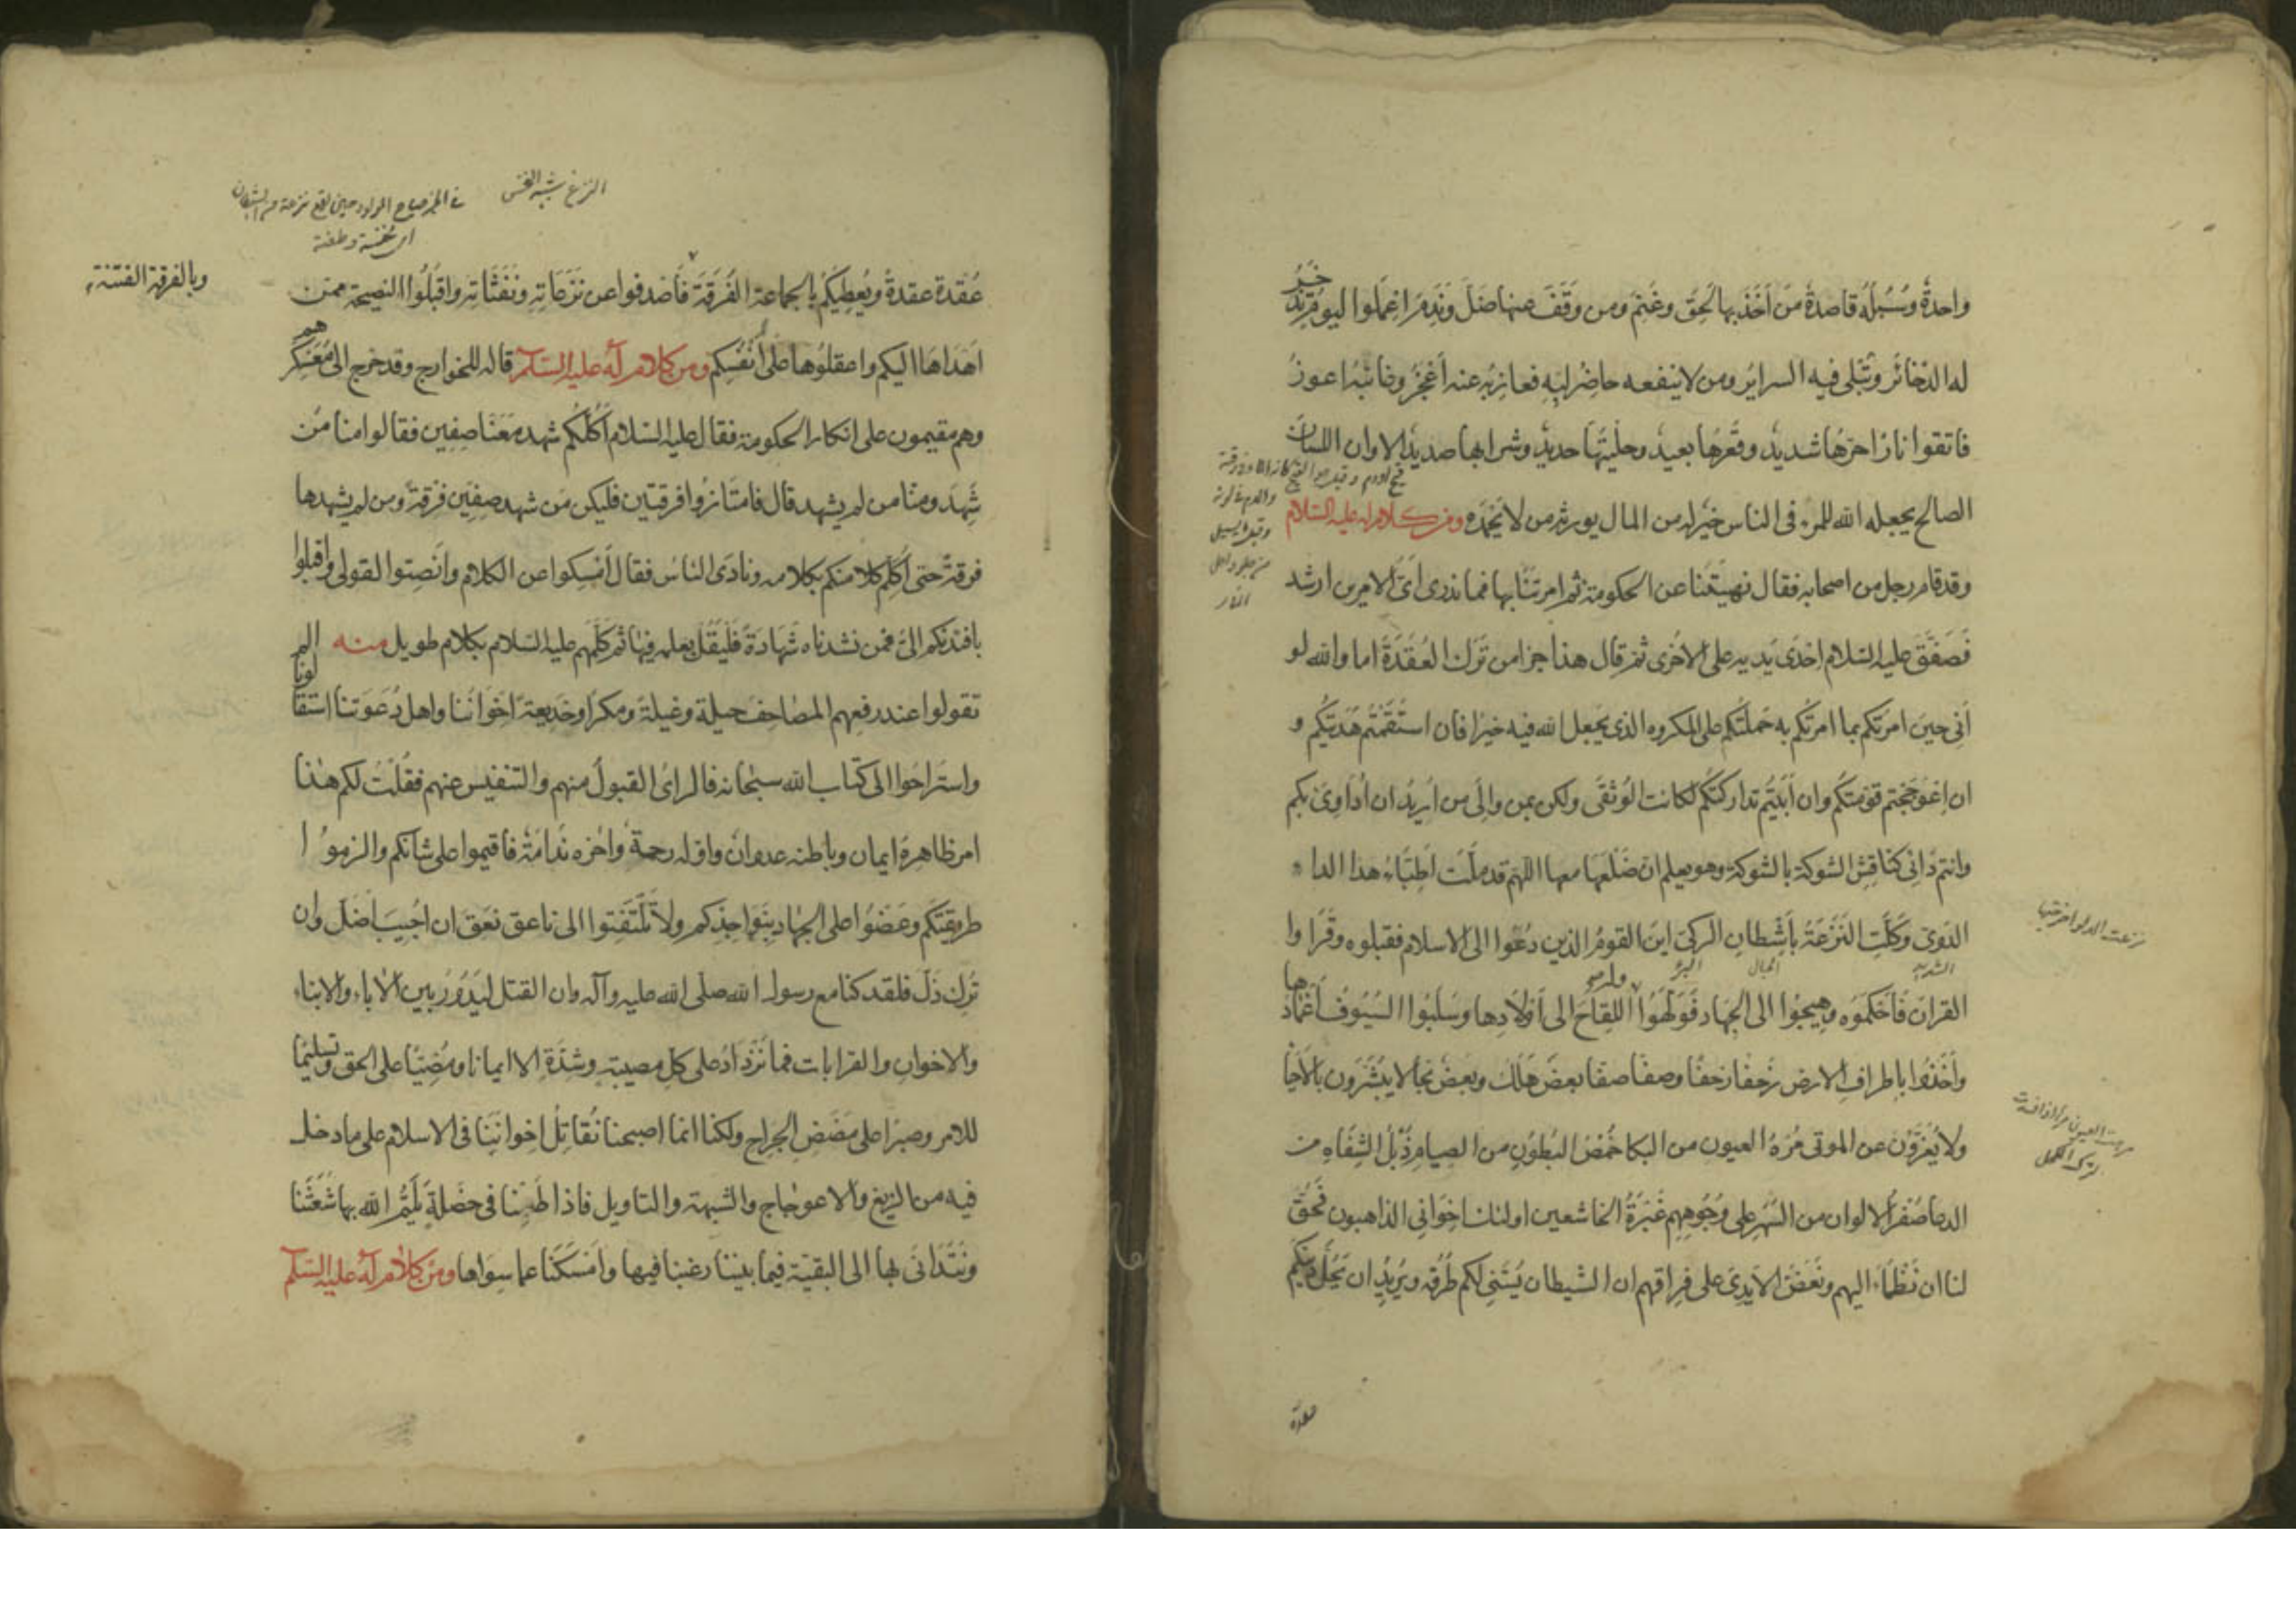 واحدةٌ وسُبُلُه قاصدةٌ مَن اَخَذَ بها لَحِقَ وغَنِمَ ومن وَقَفَ عنها ضَلَّ ونَدِمَ اعْمَلُوا ليومٍ تُذْخَرُ
له الذخائر وتُبْلى فيه السرائرُ ومن لا ينفعه حاضرُ لُبِّهِ فعازبُه عنه اَعْجَزُ وغائبُه اعوزُ
فاتقوا نارًا حَرُّها شديدٌ وقَعْرُها بعيدٌ وحليتُها حديدٌ وشرابها صديدٌ الا وان اللسان
الصالح يجعله الله للمرء فى الناس خيرٌ له من المال يورثه من لا يَحْمَدُه ومن كلام له عليه السلام
وقد قام رجل من اصحابه فقال نهيتَنا عن الحكومة ثم امرتَنا بها فما ندرى اىُّ الامرين ارشد
فَصَفَّقَ عليه السلام اِحْدَى يَديه على الاُخْرى ثم قال هذا جزا من تَرَك العُقْدَةَ اما والله لو
اَنّى حين امرتكم بما امرتكم به حَمَلْتُكم على المكروه الذى يَجْعل الله فيه خيرًا فان استَقَمْتُم هَدَيتُكم و
ان اعْوَجَجْتم قوّمتُكم وان اَبَيْتُم تداركتُكُم لكانت الوُثْقَى ولكن بمن والى من اُريدُ ان اُدَاوِىَ بكم
وانتم دَائى كناقِشِ الشوكة بالشوكة وهو يعلم ان ضَلْعَها معها اللهم قد مَلَّت اَطِبَّاءُ هذا الداء
الدَّوِىّ وكَلَّتِ النَّزَعَةُ بأَشْطانِ الركىّ اين القومُ الذين دُعُوا الى الاسلام فقبلوه وقَرَاوا
القرانَ فَاَحْكَمُوه وهِيجُوا الى الجهاد فَوَلَّهُوا اللِقاحَ الى اَوْلَادِها وسَلَبُوا السُّيُوفَ اَغْمَادَها
واَخَذُوا باطرافِ الارض زَحْفًا زحفًا وصفًا صفًا بعضٌ هَلَكَ وبعضٌ نجا لا يُبَشَّرون بالاَحْيا
ولا يُعَزَّوْن عن الموتى مُرْهُ العيون من البكا خُمْصُ البُطونِ من الصيام ذُبْلُ الشِّفَاهِ من
الدعا صُفْرُ الالوان من السَّهَرِ على وُجُوهِهِم غَبَرَةُ الخاشعين اولئك اخوانى الذاهبون فحَقَّ
لنا ان نَظْمَاءَ اليهم ونَعَضَّ الاَيدِىَ على فِراقهم ان الشيطان يُسَنّى لكم طُرُقه ويُرِيدُ ان يَحُلَّ دينكم
عقدة
نزعت الدلو اخرجتها
الشديد
الحبال
البئر
مرهت العين مرها اذا فسدت
لترك الكحل
النزغ شبه النخس
فى الخبر صياح المولود حين يقع نزغة من الشيطان
اى نخسة وطعنة
وبالفرقة الفتنة
عُقْدةً عقدةً ويُعطِيَكُم بالجماعة الفُرْقَةَ فَاصْدِفوا عن نَزَغاتِهِ ونَفَثَاتِهِ واقْبَلُوا النصيحة ممن
اَهْدَاهَا اليكم واعقلُوها على اَنْفُسِكم ومن كلام له عليه السلم قاله للخوارج وقد خرج الى مُعَسْكَرِهم
وهم مقيمون على انكار الحكومة فقال عليه السلام اَكُلُّكُم شهد مَعَنَا صِفِّين فقالوا منا مَن
شَهِدَ ومنّا من لم يشهد قال فامتَازُوا فرقتين فليكن مَن شهد صِفِّين فِرْقةً ومن لم يشهدها
فرقةً حتى اُكَلِّمَ كلا منكم بكلامه ونادَى الناسَ فقال اَمْسِكوا عن الكلام واَنْصِتوا لقولى واقبلوا
بافئدتكم الىَّ فمن نشدناه شَهَادَةً فَلْيَقُل بعلمه فيها ثم كَلَّمهم عليه السلام بكلام طويل منه الم
تقولوا عند رفعِهم المصاحفَ حيلة وغيلةً ومكرًا وخَديعةً اِخْوَانُنا واهلُ دَعْوَتنا استقالونا
واستَراحُوا الى كتاب الله سبحانه فالراىُ القبولُ منهم والتنفيس عنهم فقُلْتُ لكم هذا
امر ظاهرهُ ايمان وباطنه عدوانٌ واوّله رحمةٌ واخره نَدامَةٌ فاقيموا على شانكم والزموُا
طريقتكم وعَضّوُا على الجهاد بنَوَاجِذكم ولا تَلْتَفِتوا الى ناعق نَعَقَ ان اُجيبَ اضَلَّ وان
تُرِك ذَلَّ فلقد كنا مع رسول الله صلى الله عليه وآله وان القتل لَيَدُورُ بين الاباء والابناء
والاخوان والقرابات فما نَزْدَادُ على كل مصيبة وشدّةٍ الا ايمانا ومُضِيًّا على الحق وتسليمًا
للامر وصبرًا على مَضَضِ الجِراح ولكنا انما اصبحنا نُقَاتِلُ اِخوانَنا فى الاسلام على ما دخل
فيه من الزيغ والاعوجاج والشبهة والتاويل فاذا طَمِعْنا فى خَصْلَةٍ يَلُمُّ الله بها شَعَثَنا
ونَتَدَانَى بها الى البقيّة فيما بيننا رغبنا فيها وامْسَكْنا عما سِوَاها ومن كلام له عليه السلم